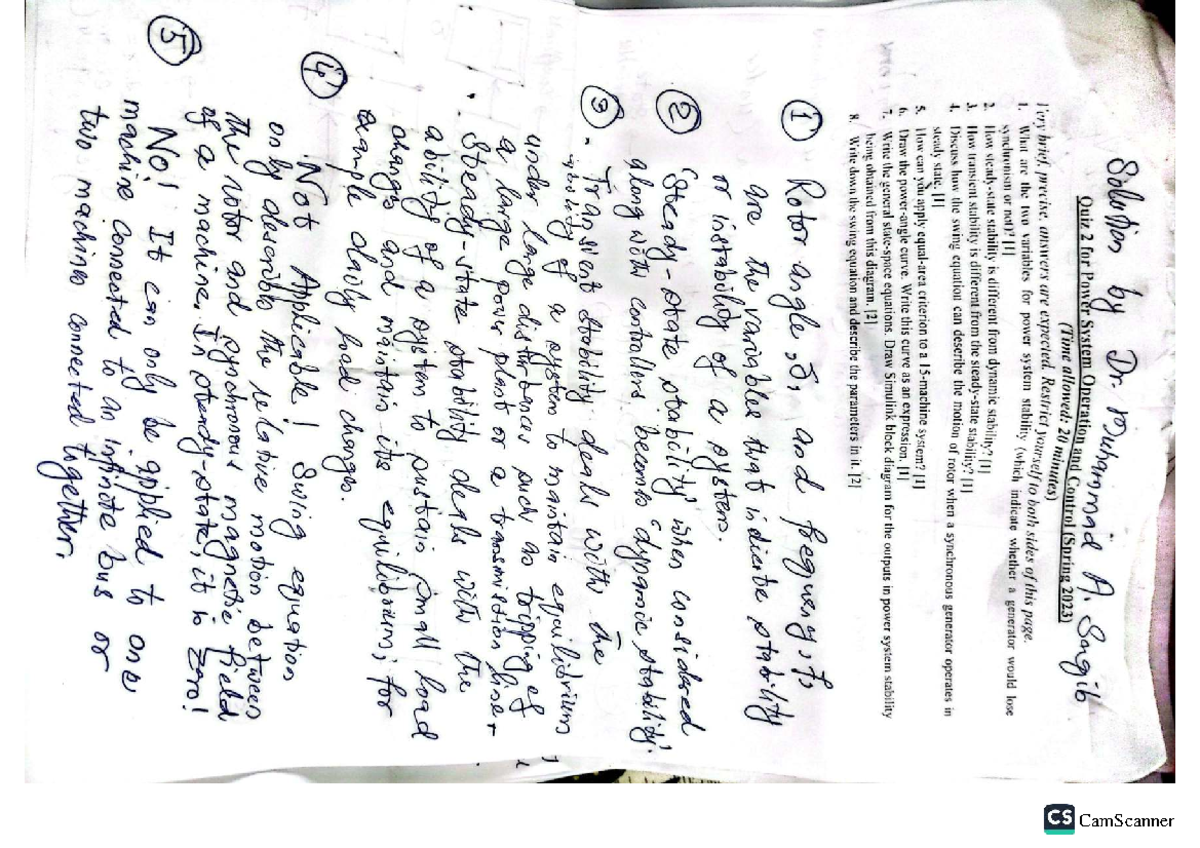 Solution by Dr. Muhammad A. Saqib
Quiz 2 for Power System Operation and Control (Spring 2023)
(Time allowed: 20 minutes)
Very brief, precise, answers are expected. Restrict yourself to both sides of this page.
1. What are the two variables for power system stability (which indicate whether a generator would lose
synchronism or not? [1]
2. How steady-state stability is different from dynamic stability? [1]
3. How transient stability is different from the steady-state stability? [1]
4. Discuss how the swing equation can describe the motion of rotor when a synchronous generator operates in
steady state. [1]
5. How can you apply equal-area criterion to a 15-machine system? [1]
6. Draw the power-angle curve. Write this curve as an expression. [1]
7. Write the general state-space equations. Draw Simulink block diagram for the outputs in power system stability
being obtained from this diagram. [2]
8. Write down the swing equation and describe the parameters in it. [2]
① Rotor angle, δ, and frequency, f
are the variables that indicate stability
or instability of a system.
② "Steady-state stability" when considered
along with controllers becomes "dynamic stability".
③ • Transient stability deals with the
ability of a system to maintain equilibrium,
under large disturbances such as tripping of
a large power plant or a transmission line.
• Steady-state stability deals with the
ability of a system to sustain small load
changes and maintain its equilibrium; for
example daily load changes.
④ Not Applicable! Swing equation
only describes the relative motion between
the rotor and synchronous magnetic field
of a machine. In steady-state, it is zero!
⑤ No! It can only be applied to one
machine connected to an infinite bus or
two machines connected together.
CS CamScanner